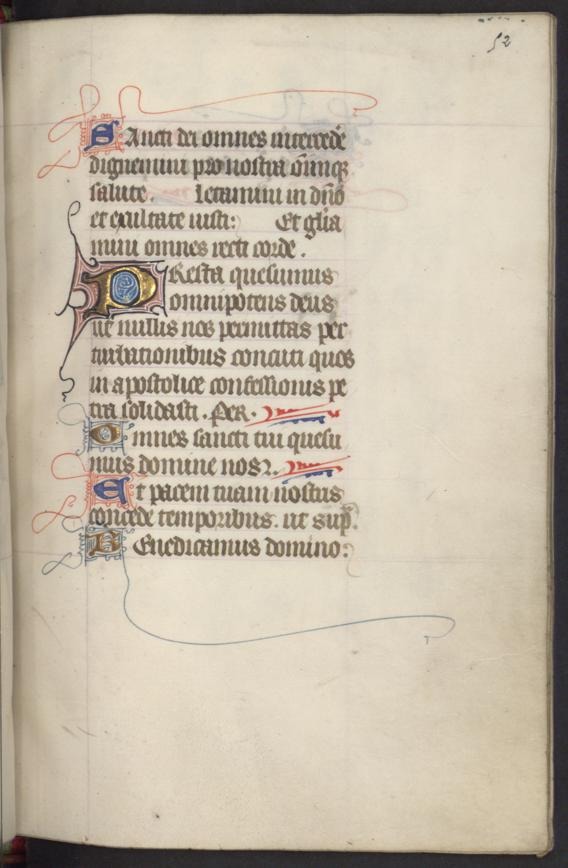 52
Sancti dei omnes intercedẽ
dignemini pro nostra oñniq̃
salute. Letamini in dño
et exultate iusti: Et glia
mini omnes recti corde.
PResta quesumus
omnipotens deus
ut nullis nos permittas per
turbationibus concuti quos
in apostolice confessionis pe
tra solidasti. Per.
Omnes sancti tui quesu
mus domine nos.
Et pacem tuam nostris
concede temporibus. ut sup̃.
BEnedicamus domino: